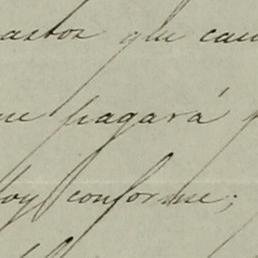 gastos que cau
ue pagará p
oy conforme;